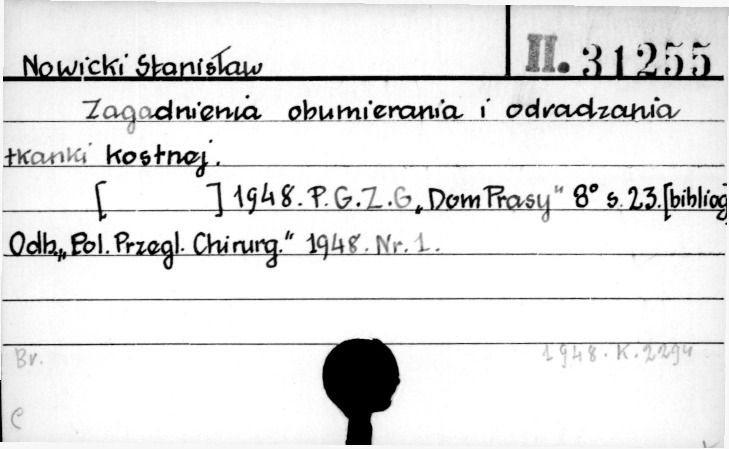 Nowicki Stanisław II. 31255
Zagadnienia obumierania i odradzania
tkanki kostnej.
[ ] 1948. P.G.Z.G „Dom Prasy" 8° s. 23. [bibliog
Odb. „Pol. Przegl. Chirurg." 1948. Nr. 1.
Br. 1948. K. 2294
C